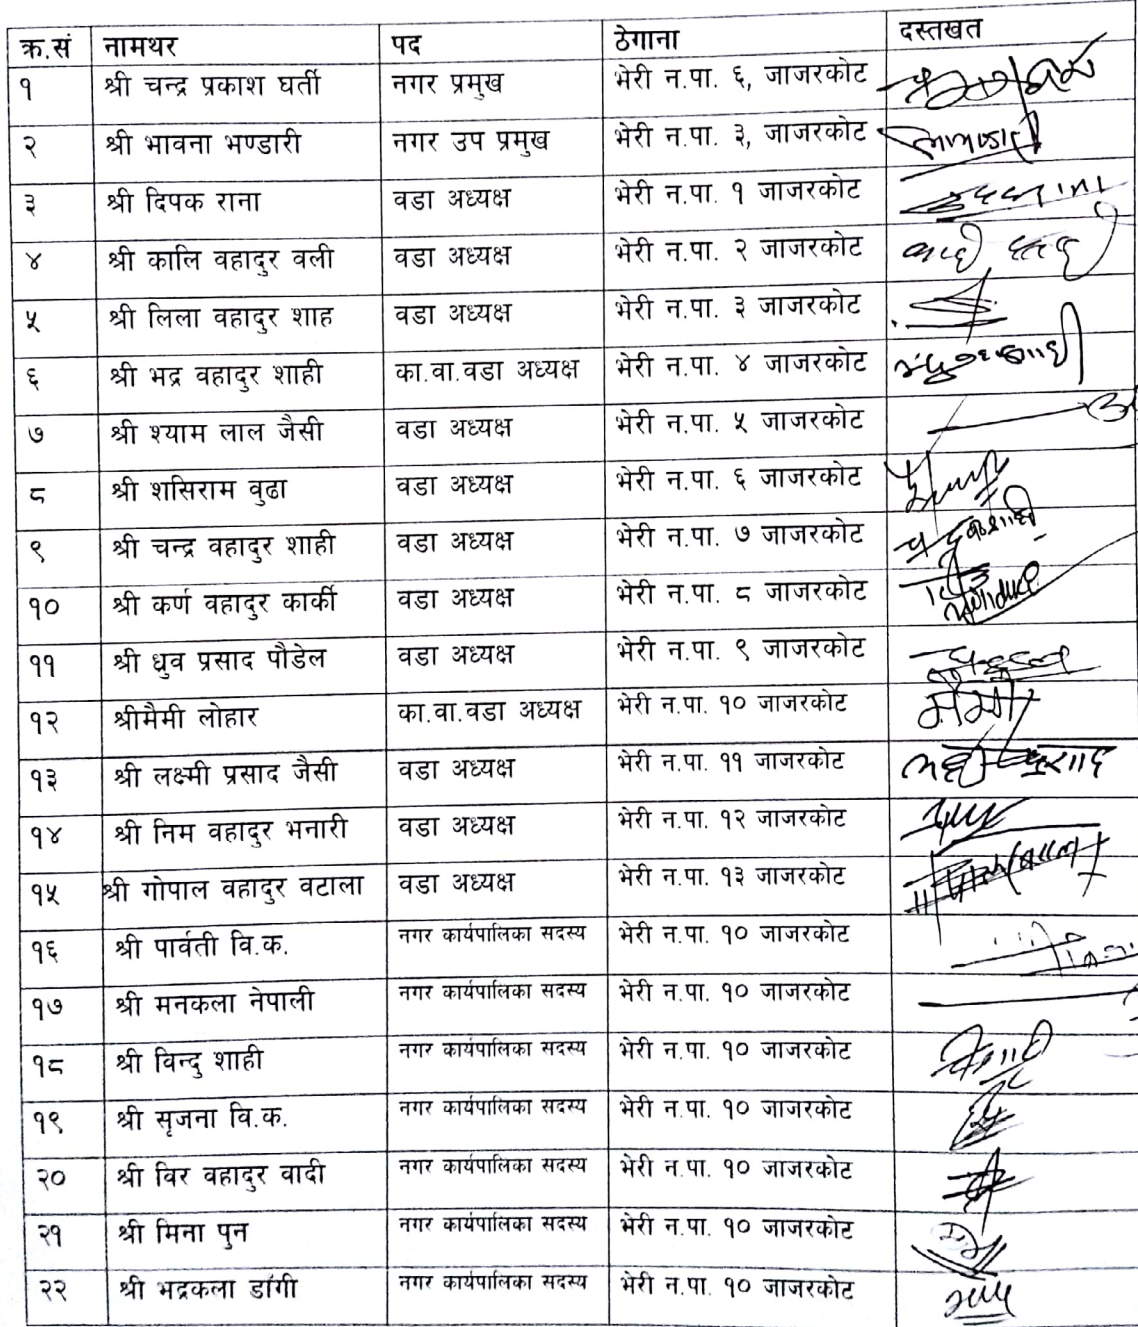 क्र.सं नामथर पद ठेगाना दस्तखत
१ श्री चन्द्र प्रकाश घर्ती नगर प्रमुख भेरी न.पा. ६, जाजरकोट
२ श्री भावना भण्डारी नगर उप प्रमुख भेरी न.पा. ३, जाजरकोट
३ श्री दिपक राना वडा अध्यक्ष भेरी न.पा. १ जाजरकोट
४ श्री कालि वहादुर वली वडा अध्यक्ष भेरी न.पा. २ जाजरकोट
५ श्री लिला वहादुर शाह वडा अध्यक्ष भेरी न.पा. ३ जाजरकोट
६ श्री भद्र वहादुर शाही का.वा.वडा अध्यक्ष भेरी न.पा. ४ जाजरकोट
७ श्री श्याम लाल जैसी वडा अध्यक्ष भेरी न.पा. ५ जाजरकोट
८ श्री शसिराम वुढा वडा अध्यक्ष भेरी न.पा. ६ जाजरकोट
९ श्री चन्द्र वहादुर शाही वडा अध्यक्ष भेरी न.पा. ७ जाजरकोट
१० श्री कर्ण वहादुर कार्की वडा अध्यक्ष भेरी न.पा. ८ जाजरकोट
११ श्री ध्रुव प्रसाद पौडेल वडा अध्यक्ष भेरी न.पा. ९ जाजरकोट
१२ श्रीमैमी लोहार का.वा.वडा अध्यक्ष भेरी न.पा. १० जाजरकोट
१३ श्री लक्ष्मी प्रसाद जैसी वडा अध्यक्ष भेरी न.पा. ११ जाजरकोट
१४ श्री निम वहादुर भनारी वडा अध्यक्ष भेरी न.पा. १२ जाजरकोट
१५ श्री गोपाल वहादुर वटाला वडा अध्यक्ष भेरी न.पा. १३ जाजरकोट
१६ श्री पार्वती वि.क. नगर कार्यपालिका सदस्य भेरी न.पा. १० जाजरकोट
१७ श्री मनकला नेपाली नगर कार्यपालिका सदस्य भेरी न.पा. १० जाजरकोट
१८ श्री विन्दु शाही नगर कार्यपालिका सदस्य भेरी न.पा. १० जाजरकोट
१९ श्री सृजना वि.क. नगर कार्यपालिका सदस्य भेरी न.पा. १० जाजरकोट
२० श्री विर वहादुर वादी नगर कार्यपालिका सदस्य भेरी न.पा. १० जाजरकोट
२१ श्री मिना पुन नगर कार्यपालिका सदस्य भेरी न.पा. १० जाजरकोट
२२ श्री भद्रकला डांगी नगर कार्यपालिका सदस्य भेरी न.पा. १० जाजरकोट